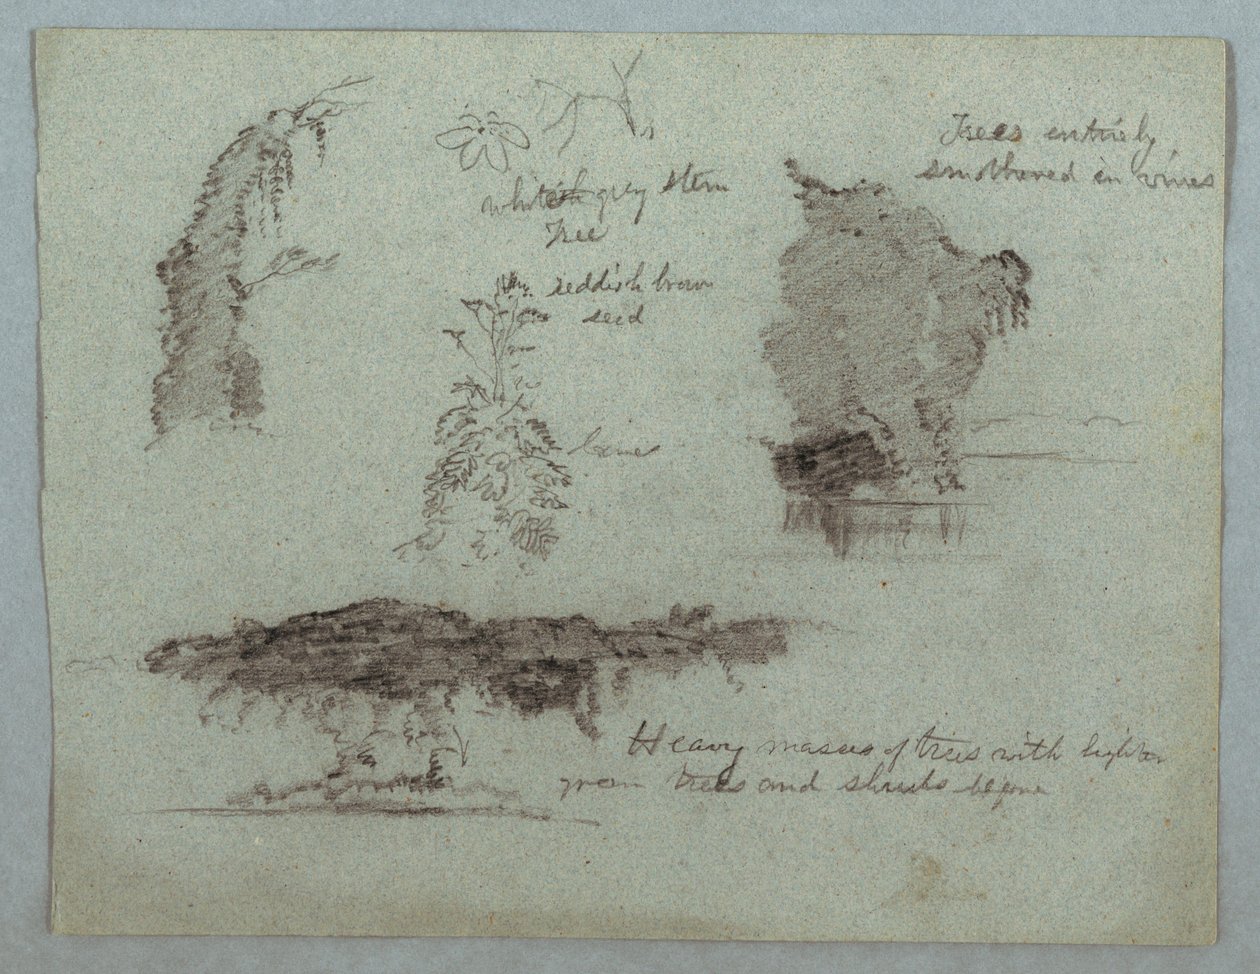 Trees entirely
smothered in vines
whiteish grey stem
Tree
reddish brown
seed
Heavy masses of trees with lighter
green trees and shrubs before